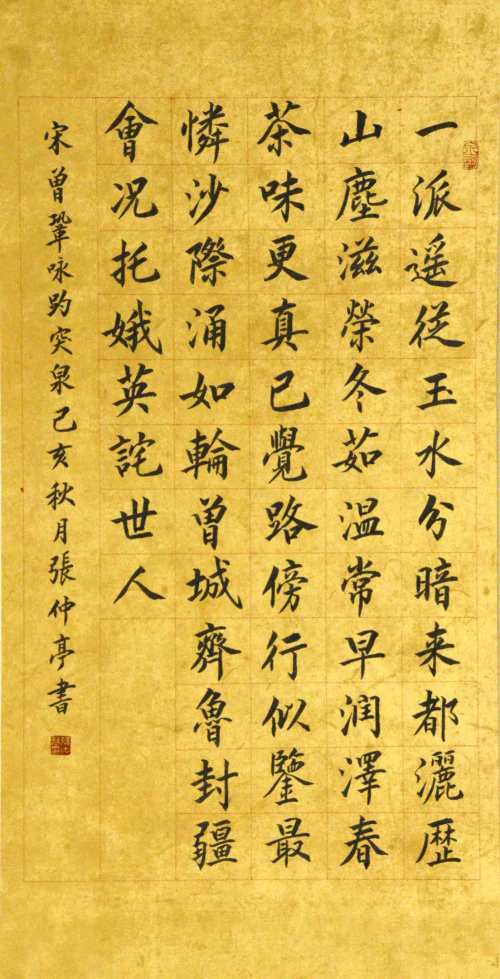 一派遥従玉水分暗来都灑歴
山塵滋榮冬茹温常早润澤春
茶味更真已覺路傍行似鑒最
憐沙際涌如輪曽城齊魯封疆
會况托娥英詫世人
宋曽鞏咏趵突泉己亥秋月張仲亭書